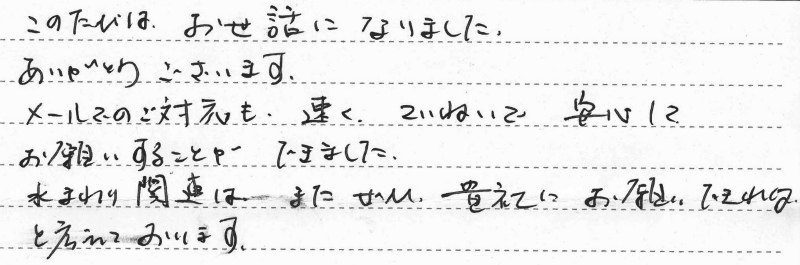 このたびは、お世話になりました。
ありがとうございます。
メールでのご対応も、速く、ていねいで 安心して
お願いすることが できました。
水まわり関連は、また ぜひ、貴社に お願いできれば
と考えております。